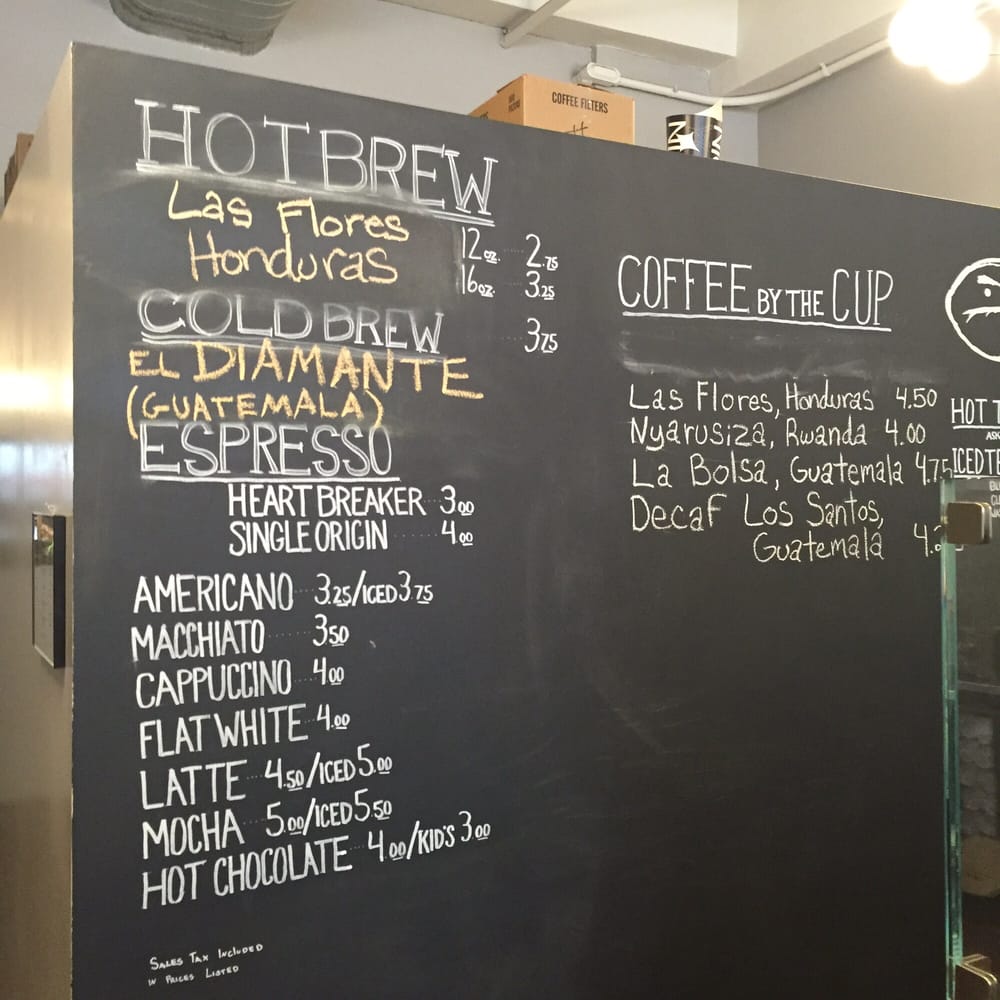 COFFEE FILTERS
HOT BREW
Las Flores
Honduras
12oz. 2.75
16oz. 3.25
COLD BREW 3.75
EL DIAMANTE
(GUATEMALA)
ESPRESSO
HEART BREAKER 3.00
SINGLE ORIGIN 4.00
AMERICANO 3.25/ICED 3.75
MACCHIATO 3.50
CAPPUCCINO 4.00
FLAT WHITE 4.00
LATTE 4.50/ICED 5.00
MOCHA 5.00/ICED 5.50
HOT CHOCOLATE 4.00/KID'S 3.00
SALES TAX INCLUDED
IN PRICES LISTED
COFFEE BY THE CUP
Las Flores, Honduras 4.50
Nyarusiza, Rwanda 4.00
La Bolsa, Guatemala 4.75
Decaf Los Santos,
Guatemala
HOT
ICED